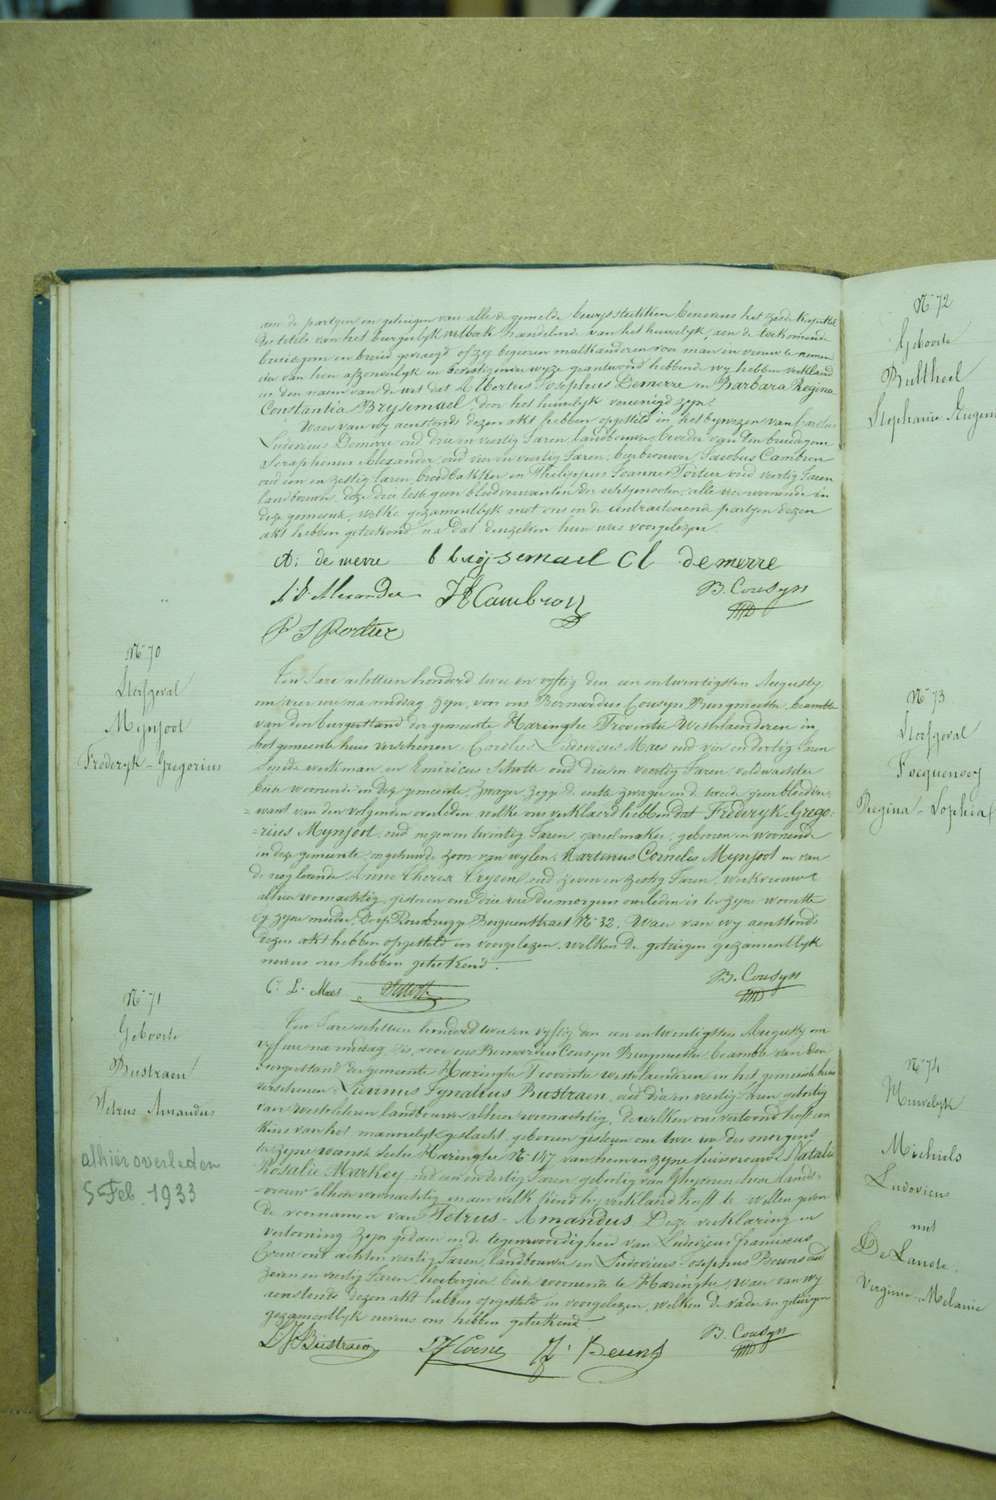 aen de partyen en getuigen van alle de gemelde bewysstukken benevens het zesde kapittel
der titels van het burgerlyk wetboek handelende van het huwelyk, aen de toekomende
bruidegom en bruid gevraegd of zy begeeren malkanderen voor man en vrouw te nemen
in den naem van de wet dat Albertus Josephus Demerre en Barbara Regina
Constantia Brysemael door het huwelyk vereenigd zyn.
Waer van wy aenstonds dezen akt hebben opgesteld in het bywezen van Carolus
Ludovicus Demerre oud drie en veertig Jaren landbouwer, broeder van den bruidegom
Seraphinus Alexander oud vier en veertig Jaren, bierbrouwer, Jacobus Cambron
oud een en zestig Jaren broodbakker en Philippus Joannes Tortier oud veertig Jaren
landbouwer, deze drie leste geen bloedverwanten der echtgenooten, alle vier woonende in
deze gemeente, welke gezamentlyk met ons en de contracteerende partyen dezen
akt hebben geteekend na dat denzelven hun was voorgelezen.
A: de merre B Brysemael CL demerre
S: F Alexander JB Cambron B. Cousyn
P J Tortier
N° 70
Sterfgeval
Mynfoot
Frederyk-Gregorius
Ten Jare achttien honderd twee en vyftig den een en twintigsten Augusty
om vier ure na middag zyn, voor ons Bernardus Cousyn Burgmeester, beambte
van den burgerstand der gemeente Haringhe Provintie Westvlaenderen in
het gemeente huis verschenen Carolus Ludovicus Maes oud vier en dertig Jaren
werkman, en Emiricus Schotte oud drie en veertig Jaren veldwachter
beide woonende in deze gemeente, zwager zegge de eerste zwager en de tweede geen bloedver-
want van den volgenden overleden, welke ons verklaerd hebben dat Frederyk-Grego-
rius Mynfoot, oud negen en twintig Jaren, garelmaker, geboren en woonende
in deze gemeente, ongehuwde zoon van wylen Martinus Cornelis Mynfoot en van
de nog levende Anne Theresa oud zeven en zestig Jaren, werkvrouw
alhier woonachtig, gisteren om drie ure des morgens overleden is ter zyne woonste
by zyne moeder, Dorp Rousbrugge Bergenstraet N° 32. Waer van wy aenstonds
dezen akt hebben opgesteld en voorgelezen, welken de getuigen gezamentlyk
nevens ons hebben geteekend.
C. L. Maes Schotte B. Cousyn
N° 71
Geboorte
Bustraen
Petrus Amandus
alhier overleden
5 Feb. 1933
Ten Jare achttien honderd twee en vyftig den een en twintigsten Augusty om
vyf ure na middag is voor ons Bernardus Cousyn Burgmeester, beambte van den
burgerstand der gemeente Haringhe Provintie Westvlaenderen in het gemeente huis
verschenen Livinus Ignatius Bustraen, oud drie en veertig Jaren geboortig
van Westvleteren landbouwer alhier woonachtig, de welken ons vertoond heeft een
kind van het mannelyk geslacht, geboren gisteren om twee ure des morgens
te zyne woonst sectie Haringhe N° 147 van hem en zyne huisvrouw Natalia
Rosalie Markey oud een en dertig Jaren geboortig van Ghyverinchove land-
bouwer alhier woonachtig, en aen welk kind hy verklaerd heeft te willen geven
de voornamen van Petrus-Amandus. Deze verklaring en
vertooning zyn gedaen in de tegenwoordigheid van Ludovicus Franciscus
Coene oud acht en veertig Jaren, landbouwer en Ludovicus Josephus Beuns oud
zeven en veertig Jaren, herbergier beide woonende te Haringhe, waer van wy
aenstonds dezen akt hebben opgesteld en voorgelezen, welken de vader en getuigen
gezamentlyk nevens ons hebben geteekend
L J Bustraen L F Coene LJ. Beuns B. Cousyn
N° 72
Geboorte
Bultheel
Stephanie Eugen
N° 73
Sterfgeval
Focquenoey
Regina-Sophia
N° 74
Huwelyk
Michiels
Ludovicus
met
De Lande
Virginie-Melanie